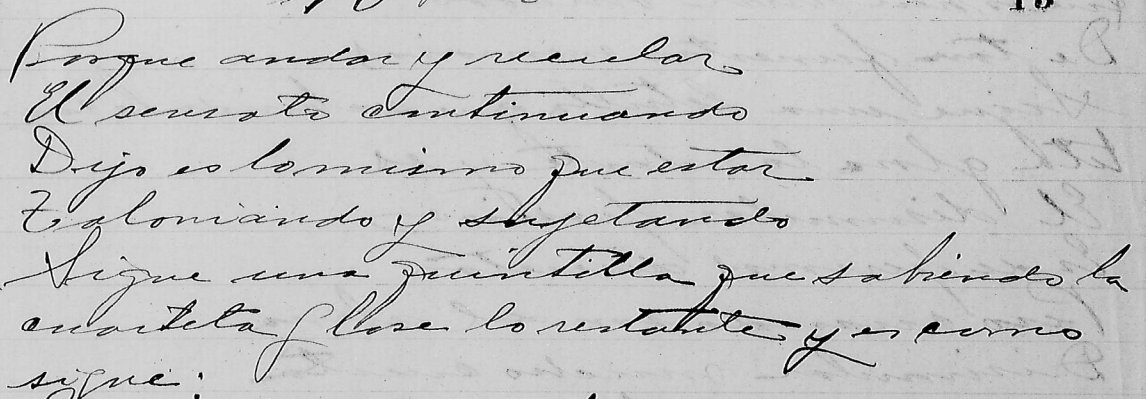 Porque andar y recular
El sensato continuando
Dijo es lo mismo que estar
Taloniando y sugetando
Sigue una quintilla que sabiendo la
cuarteta Glose lo restante y es como
sigue.